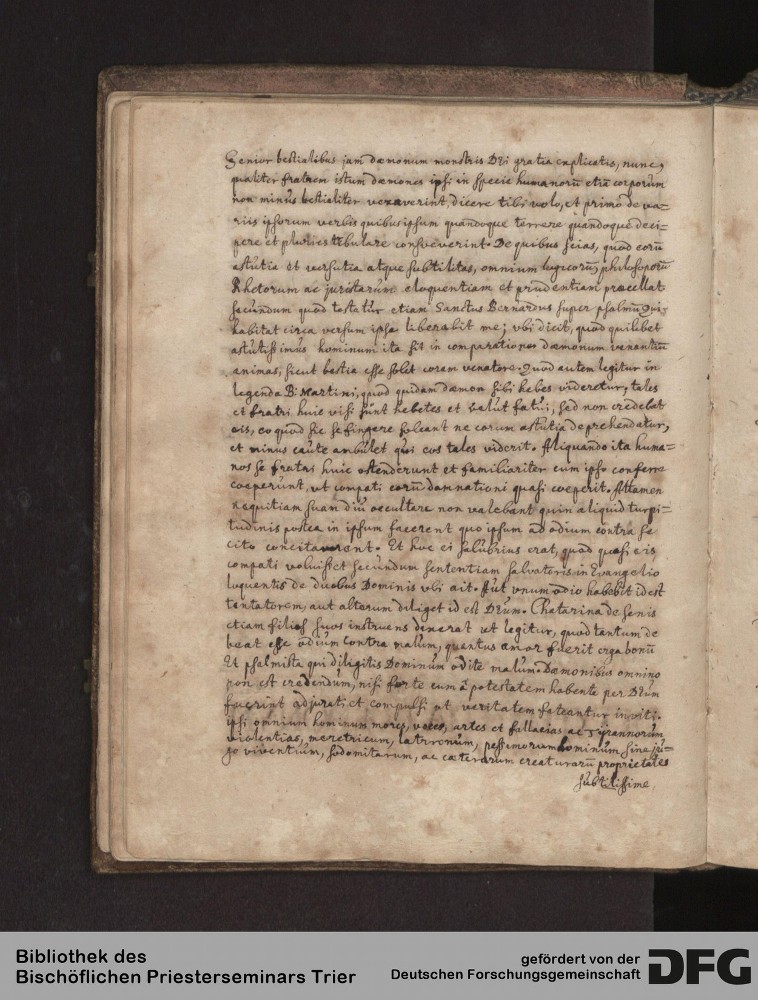 Senior bestialibus jam dæmonum monstris Dei gratia explicatis, nunc,
qualiter fratrem istum dæmones ipsi in specie humanorū etiā corporum
non minus bestialiter vexaverint, dicere tibi volo, et primo de va=
riis ipsorum verbis quibus ipsum quandoque terrere quandoque deci=
pere et pluries tribulare consueverint. De quibus scias, quod eorū
astutia et versutia atque subtilitas, omnium logicorū, philosoporū
Rhetorum ac juristarum eloquentiam et prudentiam præcellat
secundum quod testatur etiam Sanctus Bernardus super psalmū Qui
habitat circa versum ipse liberabit me; vbi dicit, quod quilibet
astutissimus hominum ita sit in comparatione dæmonum venantiū
animas, sicut bestia esse solet coram venatore. Quod autem legitur in
legenda B: Martini, quod quidam dæmon sibi hebes videretur, tales
et fratri huic visi sunt hebetes et valut fatui, sed non credebat
eis, eo quod sic se fingere soleant ne eorum astutia deprehendatur,
et minus caute ambulet qui eos tales viderit. Aliquando ita huma=
nos se fratri huic ostenderunt et familiariter cum ipso conferre
coeperunt, ut compati eorū damnationi quasi coeperit. Attamen
nequitiam suam diu occultare non valebant quin aliquid turpi=
tudinis postea in ipsum facerent quo ipsum ad odium contra se
cito concitaverant. Et hoc ei salubrius erat, quod quasi eis
compati voluisset secundum sententiam salvatoris in Evangelio
loquentis de duobus Dominis vbi ait. Aut vnum odio habebit id est
tentatorem, aut alterum diliget id est Deum. Chatarina de senis
etiam filios suos instruens dixerat ut legitur, quod tantum de
beat esse odium contra malum, quantus amor fuerit erga bonū
Et psalmista qui diligitis Dominum odite malum. Dæmonibus omnino
non est credendum, nisi forte cum à potestatem habente per Deum
fuerint adjurati et compulsi ut veritatem fateantur inviti.
ipsi omnium hominum mores, voces, artes et fallacias ac Tyrannorum
violentias, meretricum, latronum, pessimorum hominum sine ju=
go viventium, sodomitarum, ac cæterarum creaturarū proprietates
subtilissime
Bibliothek des
Bischöflichen Priesterseminars Trier
gefördert von der
Deutschen Forschungsgemeinschaft
DFG